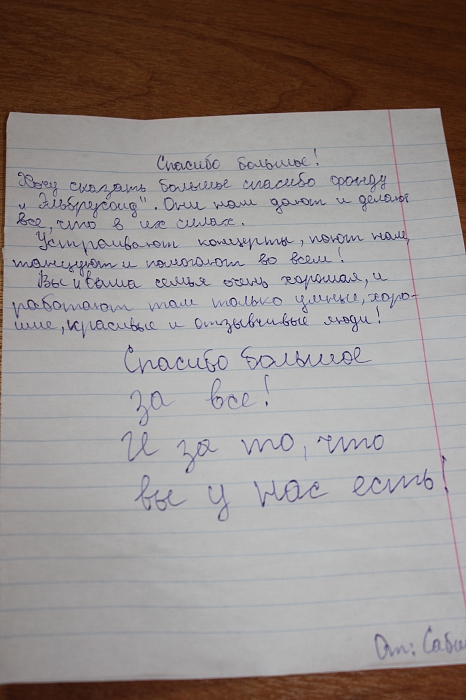 Спасибо большое!
Хочу сказать большое спасибо фонду
„Эльбрусоид". Они нам дают и делают
все, что в их силах.
Устраивают концерты, поют нам,
танцуют и помогают во всем!
Вы и ваша семья очень хорошая, и
работают там только умные, хоро-
шие, красивые и отзывчивые люди!
Спасибо большое
за все!
И за то, что
вы у нас есть!
От: Саби